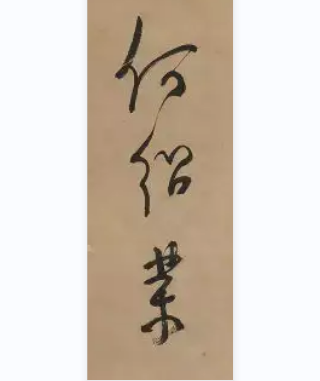 何紹業